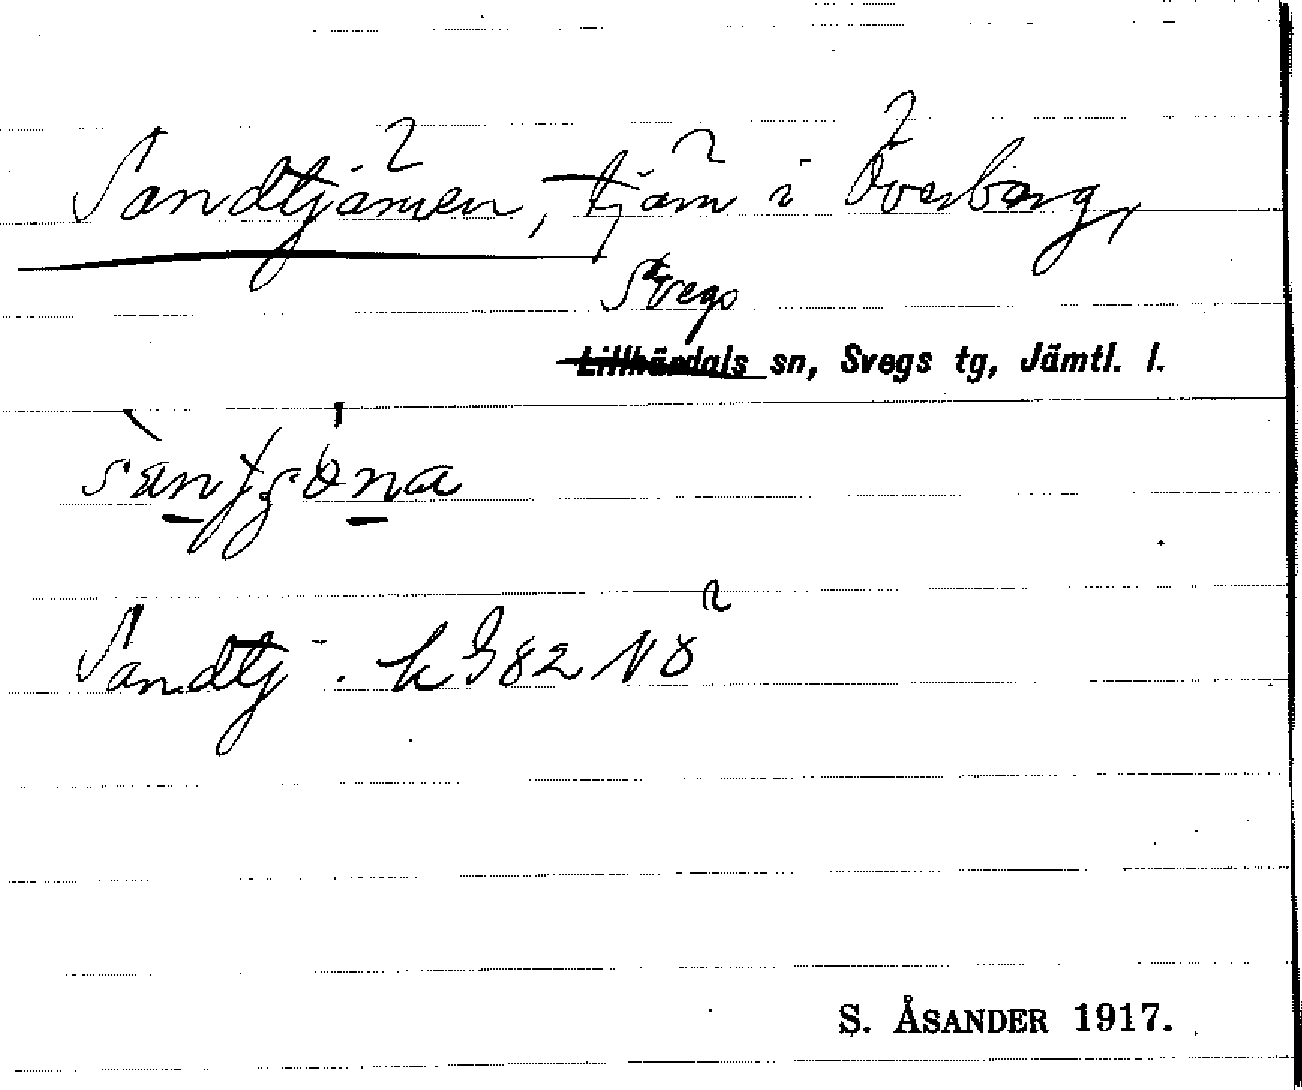 Sandtjärnen, tjärn i Överberg,
Svegs
Lillhärdals sn, Svegs tg, Jämtl. l.
Sandtj. k G 82 NÖ
S. ÅSANDER 1917.